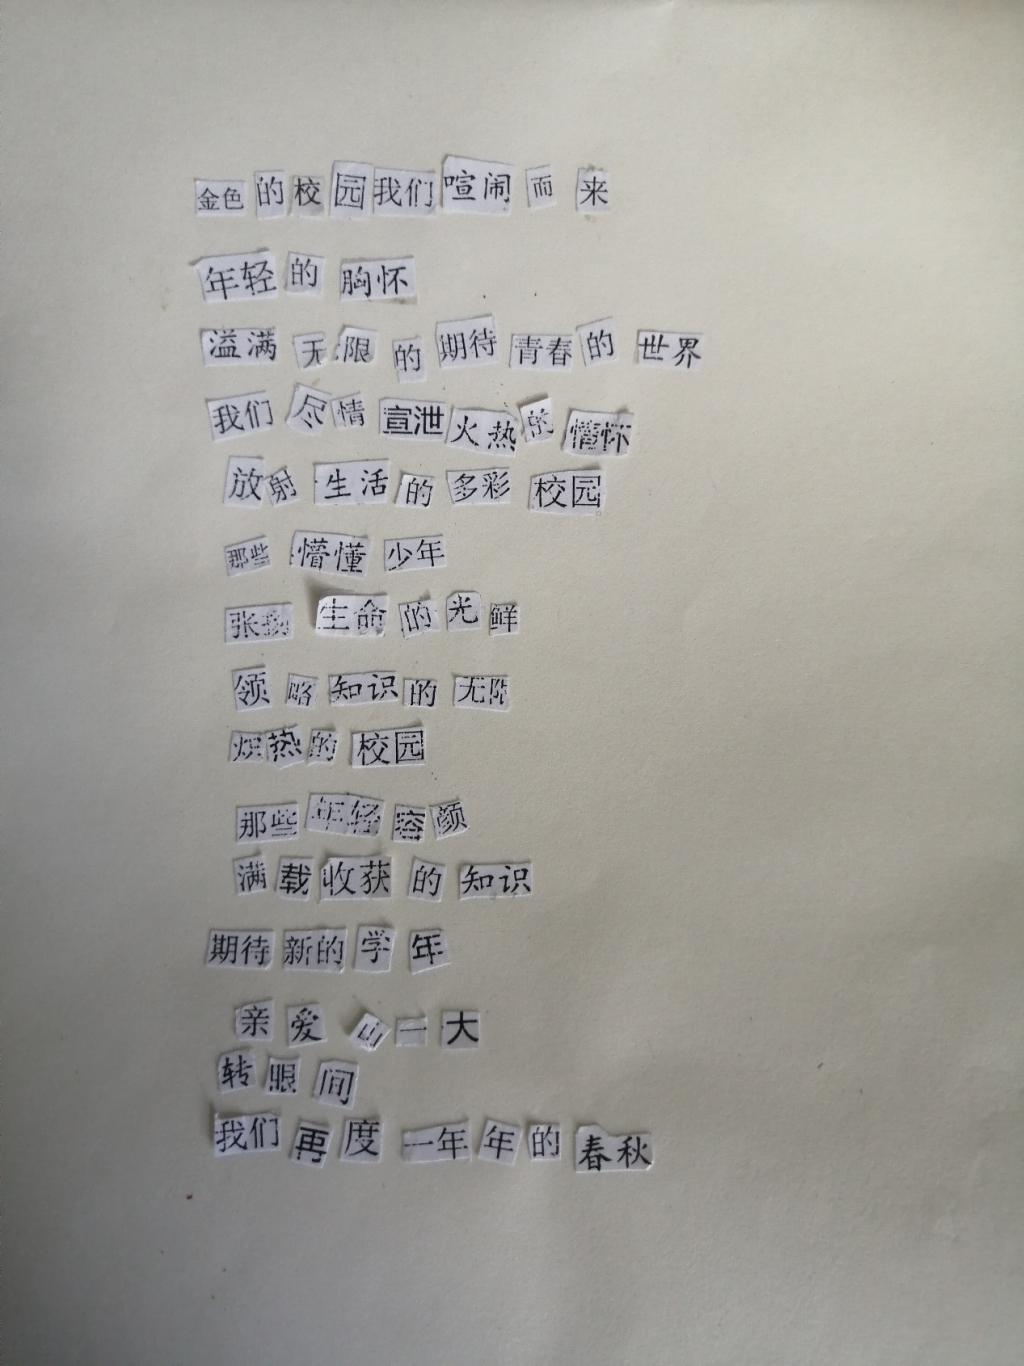 金色的校园我们喧闹而来
年轻的胸怀
溢满无限的期待青春的世界
我们尽情宣泄火热的情怀
放射生活的多彩校园
那些懵懂少年
张扬生命的光鲜
领略知识的无限
炽热的校园
那些年轻容颜
满载收获的知识
期待新的学年
亲爱山一大
转眼间
我们再度一年年的春秋